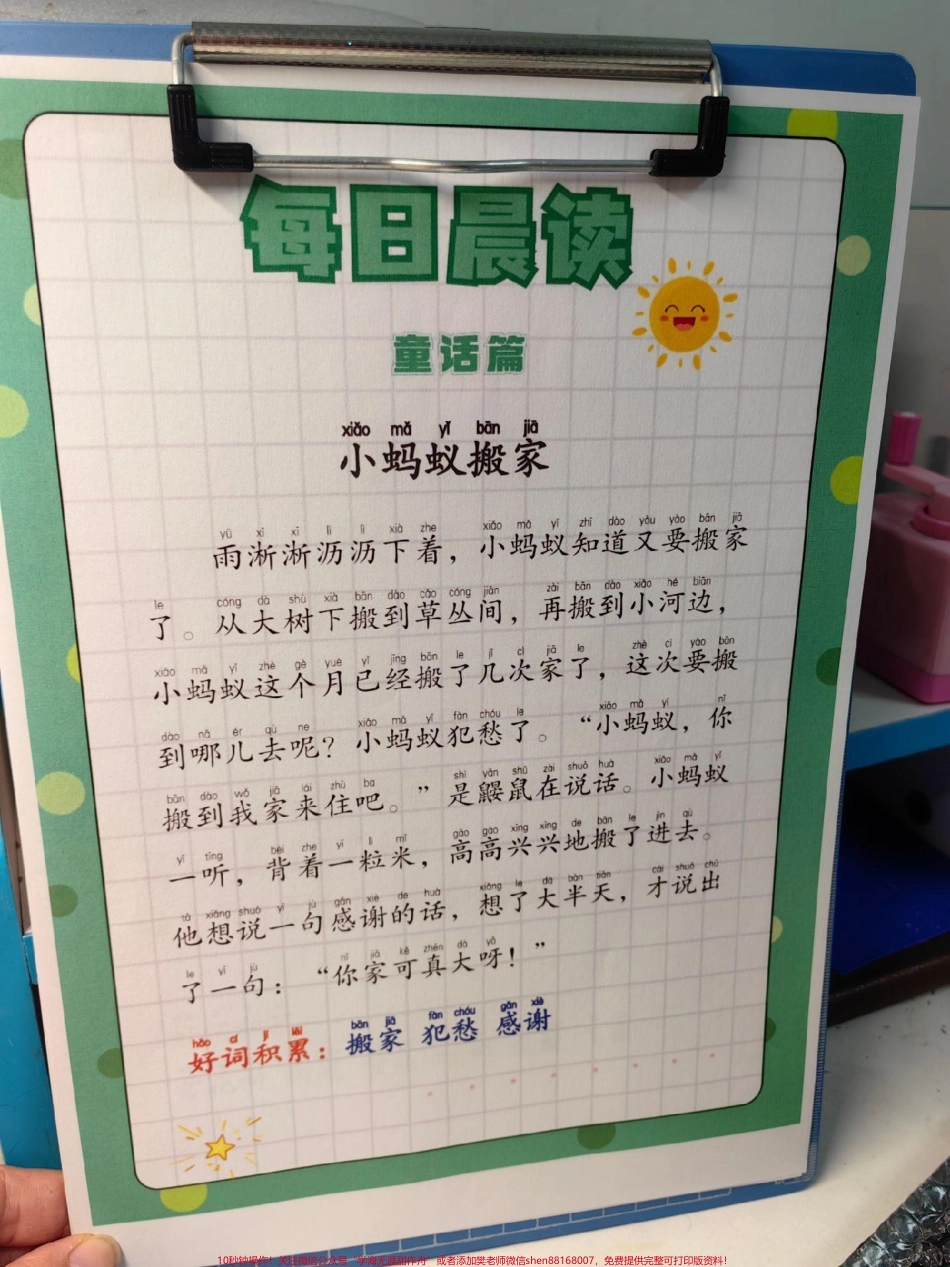 每日晨读
童话篇
xiǎo mǎ yǐ bān jiā
小蚂蚁搬家
yǔ xī xī lì lì xià zhe xiǎo mǎ yǐ zhī dào yòu yào bān jiā
雨淅淅沥沥下着，小蚂蚁知道又要搬家
le cóng dà shù xià bān dào cǎo cóng jiān zài bān dào xiǎo hé biān
了。从大树下搬到草丛间，再搬到小河边，
xiǎo mǎ yǐ zhè gè yuè yǐ jīng bān le jǐ cì jiā le zhè cì yào bān
小蚂蚁这个月已经搬了几次家了，这次要搬
dào nǎ ér qù ne xiǎo mǎ yǐ fàn chóu le xiǎo mǎ yǐ nǐ
到哪儿去呢？小蚂蚁犯愁了。“小蚂蚁，你
bān dào wǒ jiā lái zhù ba shì yǎn shǔ zài shuō huà xiǎo mǎ yǐ
搬到我家来住吧。”是鼹鼠在说话。小蚂蚁
yī tīng bēi zhe yī lì mǐ gāo gāo xìng xìng de bān le jìn qù
一听，背着一粒米，高高兴兴地搬了进去。
tā xiǎng shuō yī jù gǎn xiè de huà xiǎng le dà bàn tiān cái shuō chū
他想说一句感谢的话，想了大半天，才说出
le yī jù nǐ jiā kě zhēn dà yā
了一句：“你家可真大呀！”
hǎo cí jī lěi bān jiā fàn chóu gǎn xiè
好词积累：搬家 犯愁 感谢
或者添加樊老师微信shen88168007，免费提供完整可打印版资料！